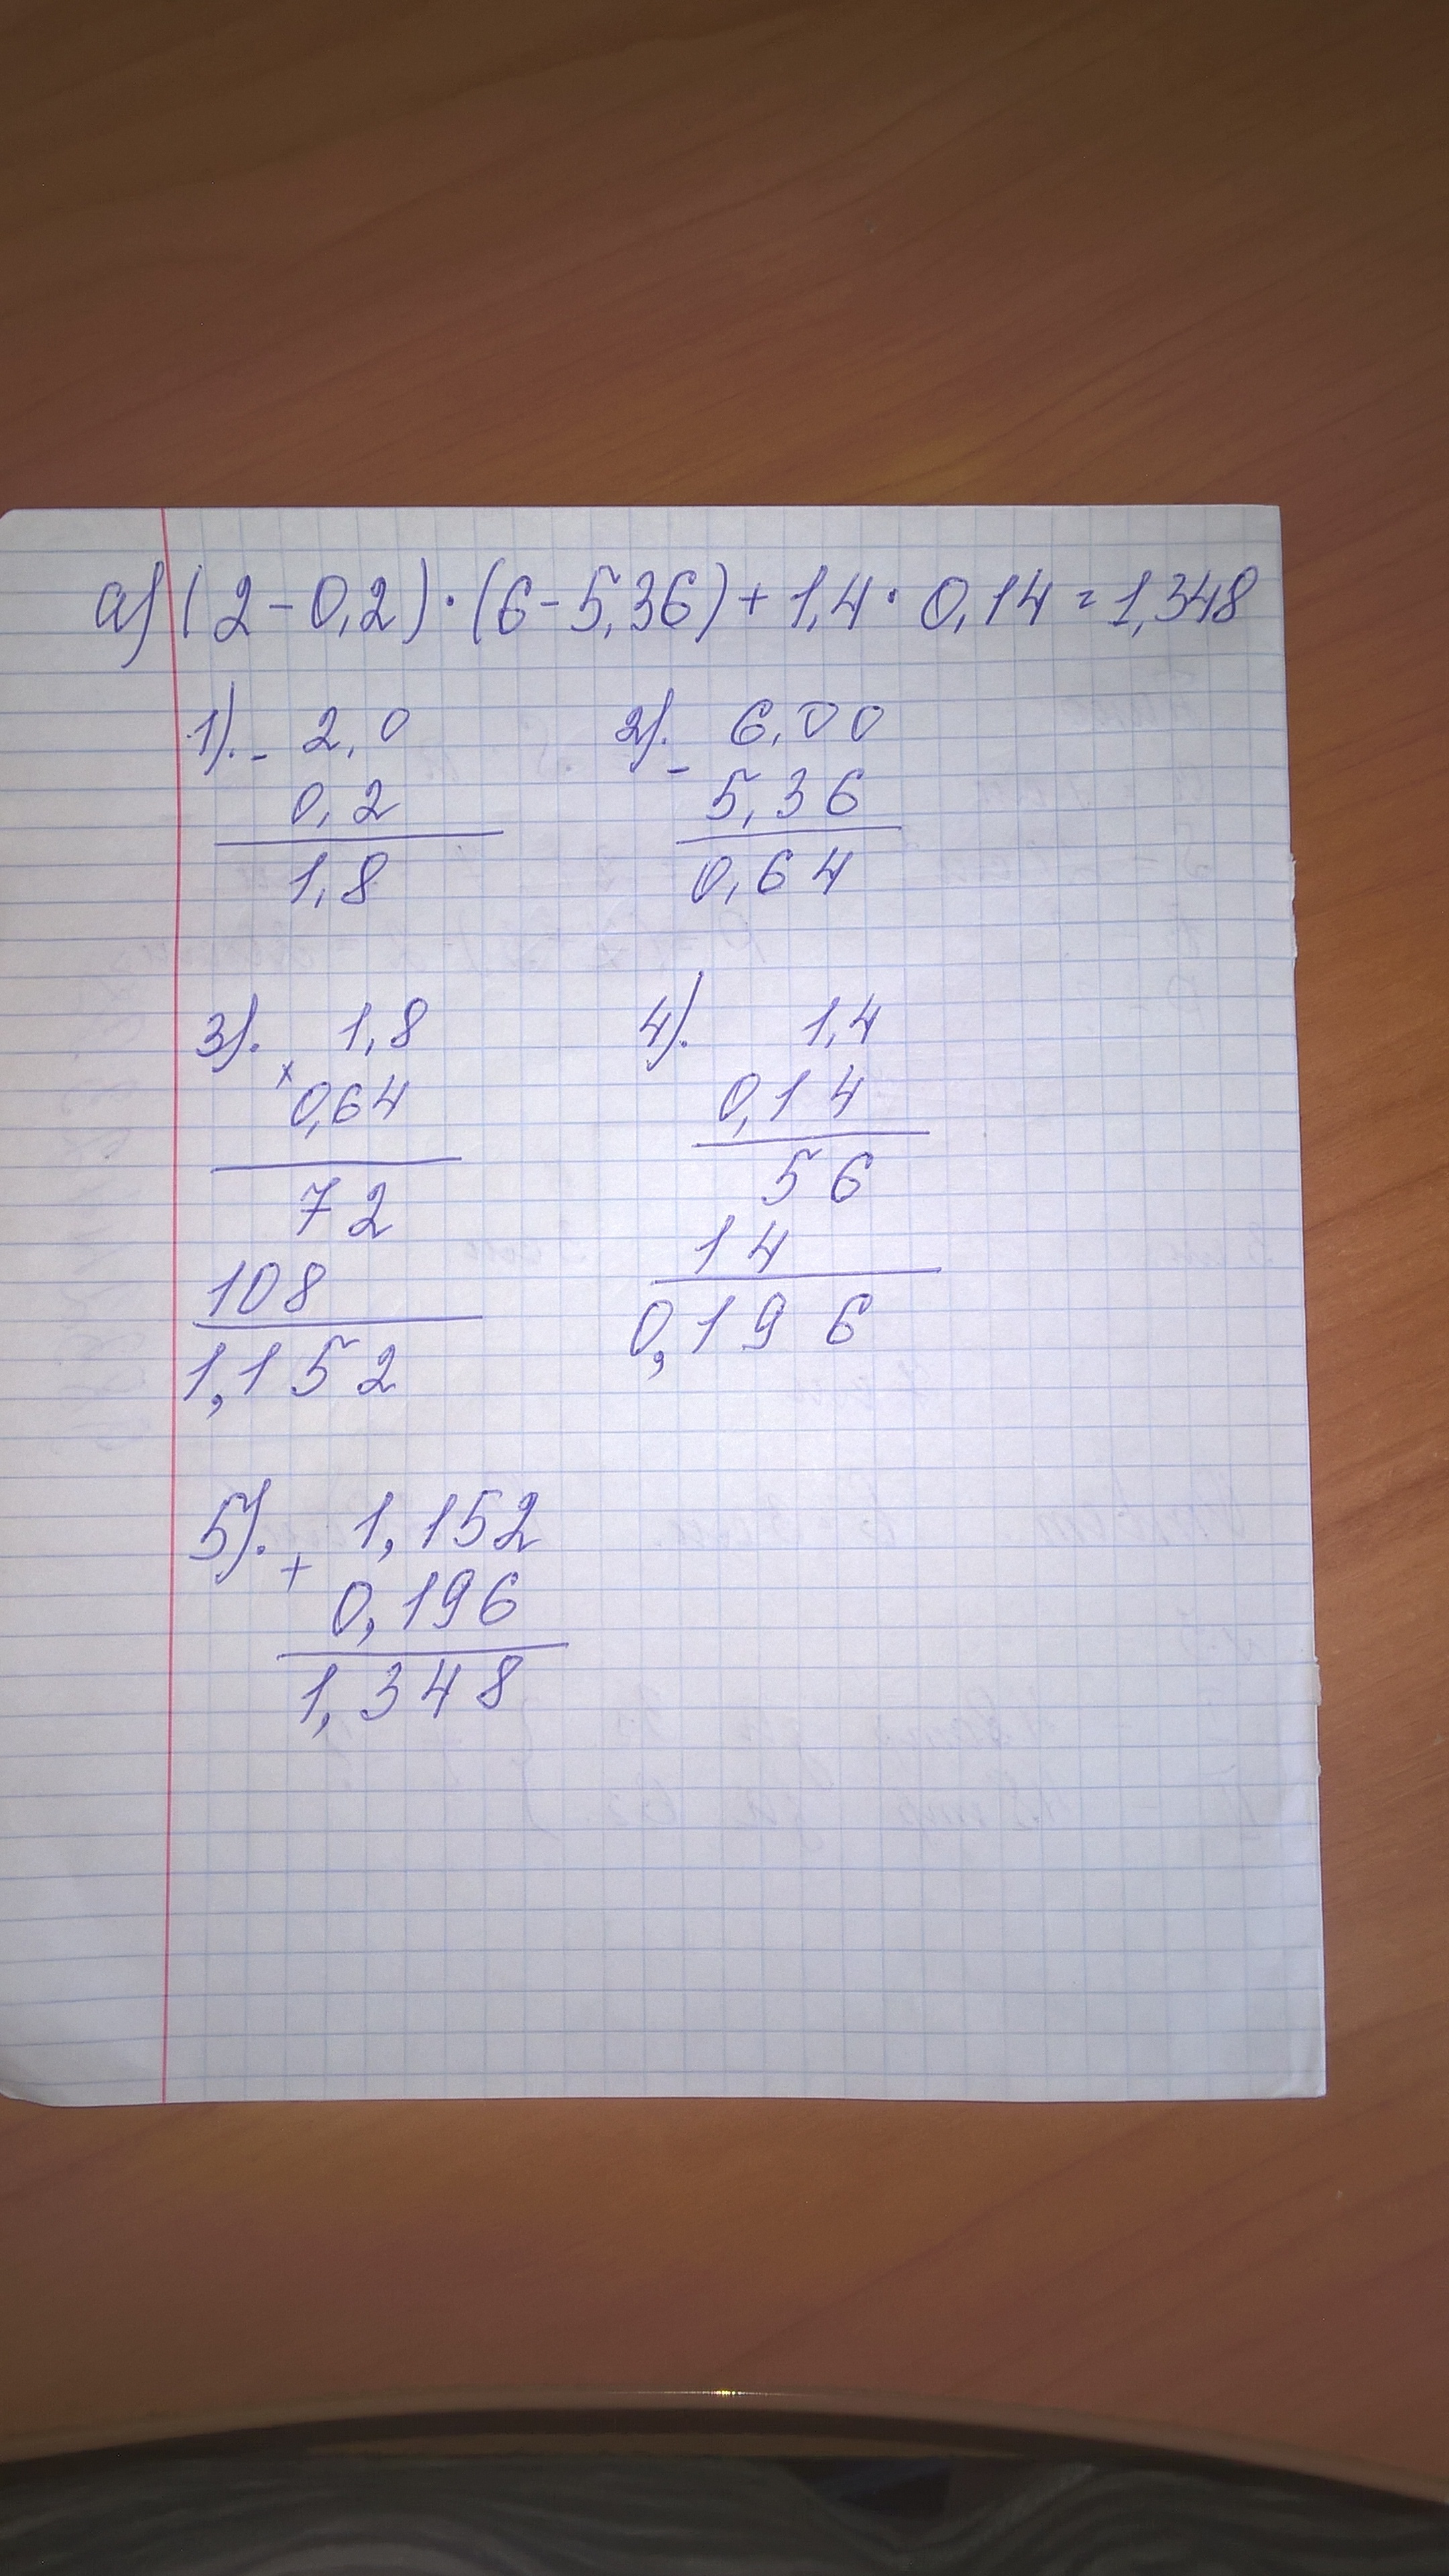 а) (2-0,2)·(6-5,36)+1,4·0,14=1,348
1). - 2,0
0,2
1,8
2). - 6,00
5,36
0,64
3). 1,8
× 0,64
72
108
1,152
4). 1,4
0,14
56
14
0,196
5). + 1,152
0,196
1,348